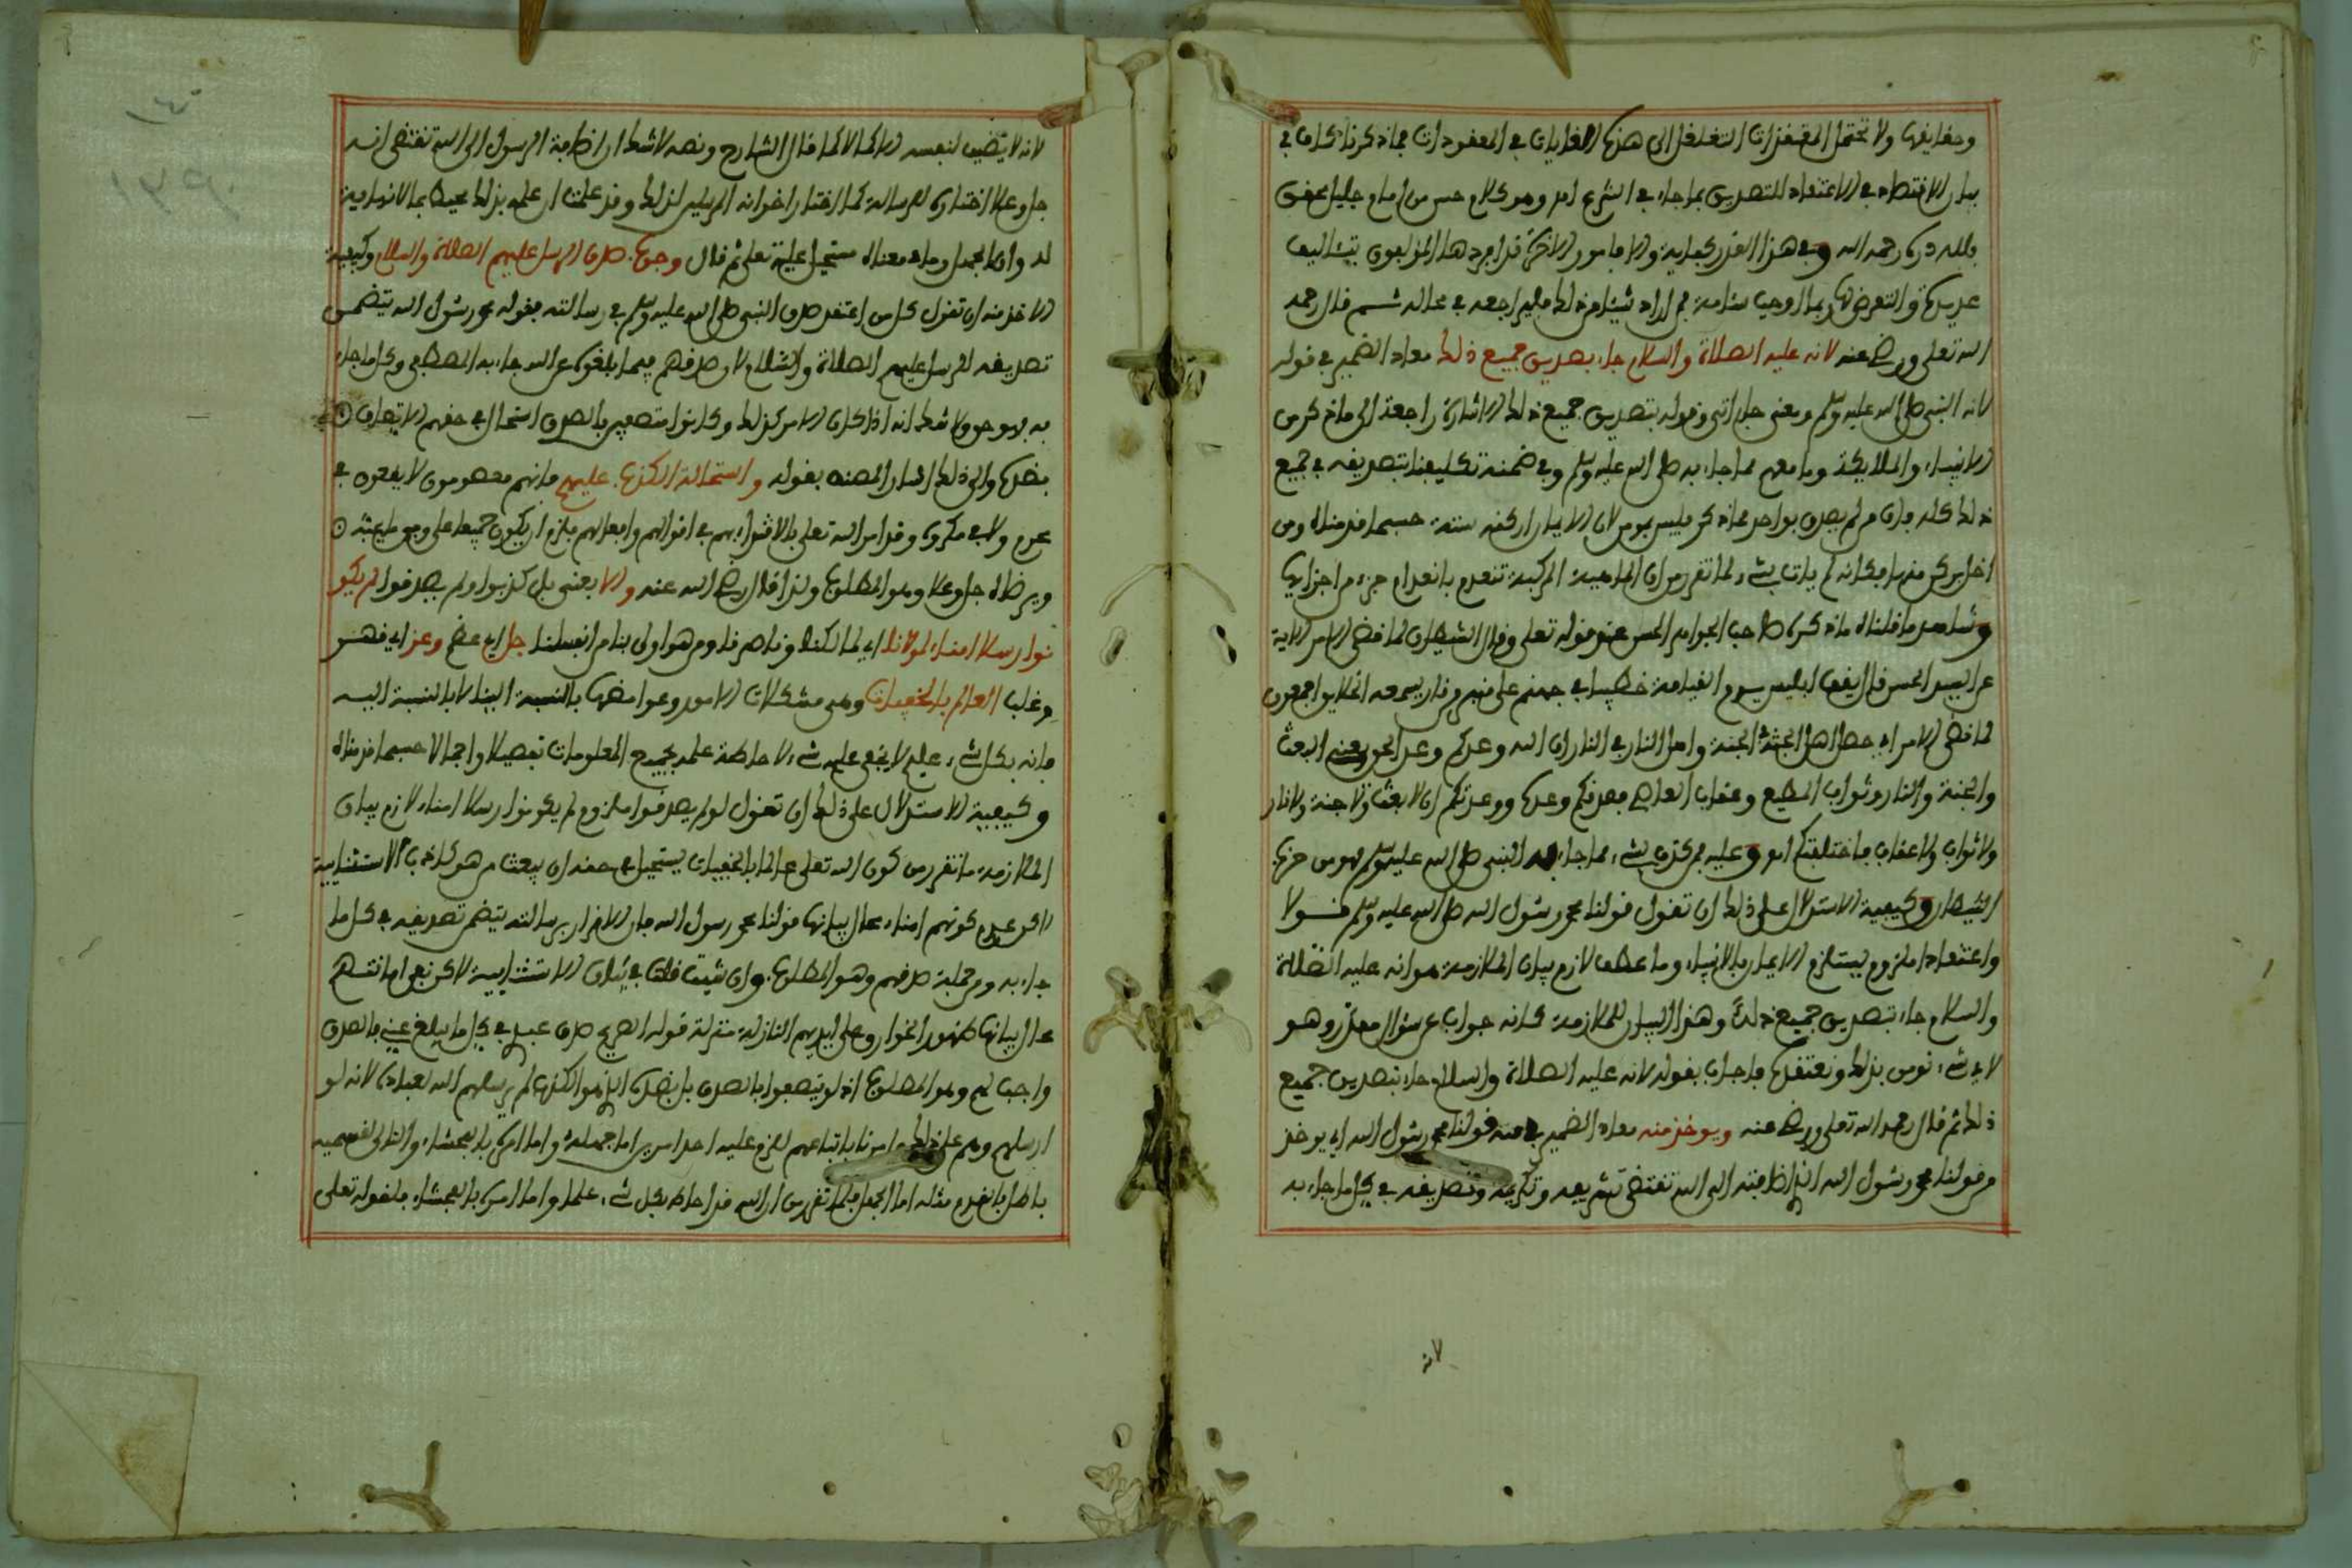 وحقايقها ولا تحتمل المختصرات التغلغل الى هذه الغايات في المعقودات مما ذكرناه كاف في
بيان الاقتصاد في الاعتقاد للتصديق بما جاء في الشرع امر وهو كلام حسن من امام جليل محقق
فلله دره رحمه الله وفي هذا القدر كفاية والامور الاخرة قد افردها المؤلفون بتئاليف
عديدة والتعرض لها ربما اوجب سئامة فمن اراد شيئا من ذلك فليراجعه في محاله ثم قال رحمه
الله تعلى ورضي عنه لانه عليه الصلاة والسلام جاء بصديق جميع ذلك معاد الضمير في قوله
لانه النبي صلى الله عليه وسلم ومعنى جاء اتى وقوله بتصديق جميع ذلك الاشارة راجعة الى ما ذكر من
الانبياء والملايكة وما معهم مما جاء به صلى الله عليه وسلم وفي ضمنه تكليفنا بتصديقه في جميع
ذلك كله فان من لم يصدق بواحد مما ذكر فليس بمومن لان الايمان اركنه ستة حسبما قدمناه ومن
اخل بركن منها فكانه لم يات بشيء لما تقرر من ان الماهية المركبة تنعدم بانعدام جزء من اجزايها
وشاهد ما قلناه ما ذكره صاحب الجواهر الحسن عند قوله تعلى وقال الشيطان لما قضي الامر الاية
عن الحسن قال يقف ابليس يوم القيامة خطيبا في جهنم على منبر من نار يسمعه الخلايق اجمعون
لما قضي الامر اي حصل اهل الجنة في الجنة واهل النار في النار ان الله وعدكم وعد الحق يعني البعث
والجنة والنار وثواب المطيع وعقاب العاصي فصدقكم وعده ووعدتكم ان لا بعث ولا جنة ولا نار
ولا ثواب ولا عقاب فاخلفتكم اهـ وعليه فمن كذب بشيء مما جاء به النبي صلى الله عليه وسلم فهو من حزب
الشيطان وكيفية الاستدلال على ذلك ان تقول قولنا محمد رسول الله صلى الله عليه وسلم قولا
واعتقادا ملزوم يستلزم الايمان بالانبياء وما عطف لازم بيان الملازمة هو انه عليه الصلاة
والسلام جاء بتصديق جميع ذلك وهذا البيان للملازمة كانه جواب عن سؤال مقدر وهو
لاي شيء نومن بذلك ونعتقده فاجاب بقوله لانه عليه الصلاة والسلام جاء بتصديق جميع
ذلك ثم قال رحمه الله تعلى ورضي عنه ويوخذ منه معاد الضمير في منه قولنا محمد رسول الله اي يوخذ
من قولنا محمد رسول الله اذ اضافته الى الله تقتضي تشريفه وتكريمه وتصديقه في كل ما جاء به
لانه
لانه لا يضيف لنفسه الا كاملا كما قال الشارح ونصه لا شك ان اضافة الرسول الى الله تقتضي انه
جل وعلا اختاره للرسالة كما اختار اخوانه المرسلين لذلك وقد علمت ان علمه بذلك محيط بما لا نهاية
له وان الجهل وما في معناه مستحيل عليه تعلى ثم قال وجوب صدق الرسل عليهم الصلاة والسلام وكيفية
الاخذ منه ان تقول كل من اعتقد صدق النبي صلى الله عليه وسلم في رسالته فقوله محمد رسول الله يتضمن
تصديقه للرسل عليهم الصلاة والسلام لان صدقهم فيما بلغوه عن الله جاء به المصطفى وكل ما جاء
به فهو حق ولا شك انه اذا كان الامر كذلك وكانوا متصفين بالصدق استحال في حقهم الاتصاف
بضده والى ذلك اشار المصنف بقوله واستحالة الكذب عليهم فانهم معصومون لا يقعون في
محرم ولا في مكروه وقد امر الله تعلى بالاقتداء بهم في اقوالهم وافعالهم فلزم ان يكون جميعها على وفق طاعته
ويرضاه جل وعلا وهو المطلوب ولذا قال رضي الله عنه والا يعني بل كذبوا ولم يصدقوا لم يكو
نوا رسلا امناء لمولانا اي لمالكنا وناصرنا ومن هو اولى بنا من انفسنا جل اي عظم وعز اي قهر
وغلب العالم بالخفيات وهي مشكلات الامور وغوامضها بالنسبة الينا لا بالنسبة اليه
فانه بكل شيء عليم لا يخفى عليه شيء لاحاطة علمه بجميع المعلومات تفصيلا واجمالا حسبما قدمناه
وكيفية الاستدلال على ذلك ان تقول لو لم يصدقوا ملزوم لم يكونوا رسلا امناء لازم بيان
الملازمة ما تقرر من كون الله تعلى عالما بالخفيات يستحيل في حقه ان يبعث من هو كاذب الاستثنايية
لاكن عدم كونهم امناء محال بيانها قولنا محمد رسول الله فان الاقرار برسالته يتضمن تصديقه في كل ما
جاء به ومن جملته صدقهم وهو المطلوب وان شيت قلت في بيان الاستثنايية لاكن نفي امانتهم
محال بيانها ظهور الخوارق على ايديهم النازلة منزلة قوله الصريح صدق عبدي في كل ما يبلغ عني فالصدق
واجب لهم وهو المطلوب اذ لو لم يتصفوا بالصدق بل بضده الذي هو الكذب لم يرسلهم الله لعباده لانه لو
ارسلهم وهم على ذلك وامرنا باتباعهم للزم عليه احد امرين اما جهله واما امره بالفحشاء والتالي بقسميه
باطل فالمقدم مثله اما الجهل فلما تقرر من ان الله قد احاط بكل شيء علما واما امره بالفحشاء فلقوله تعلى